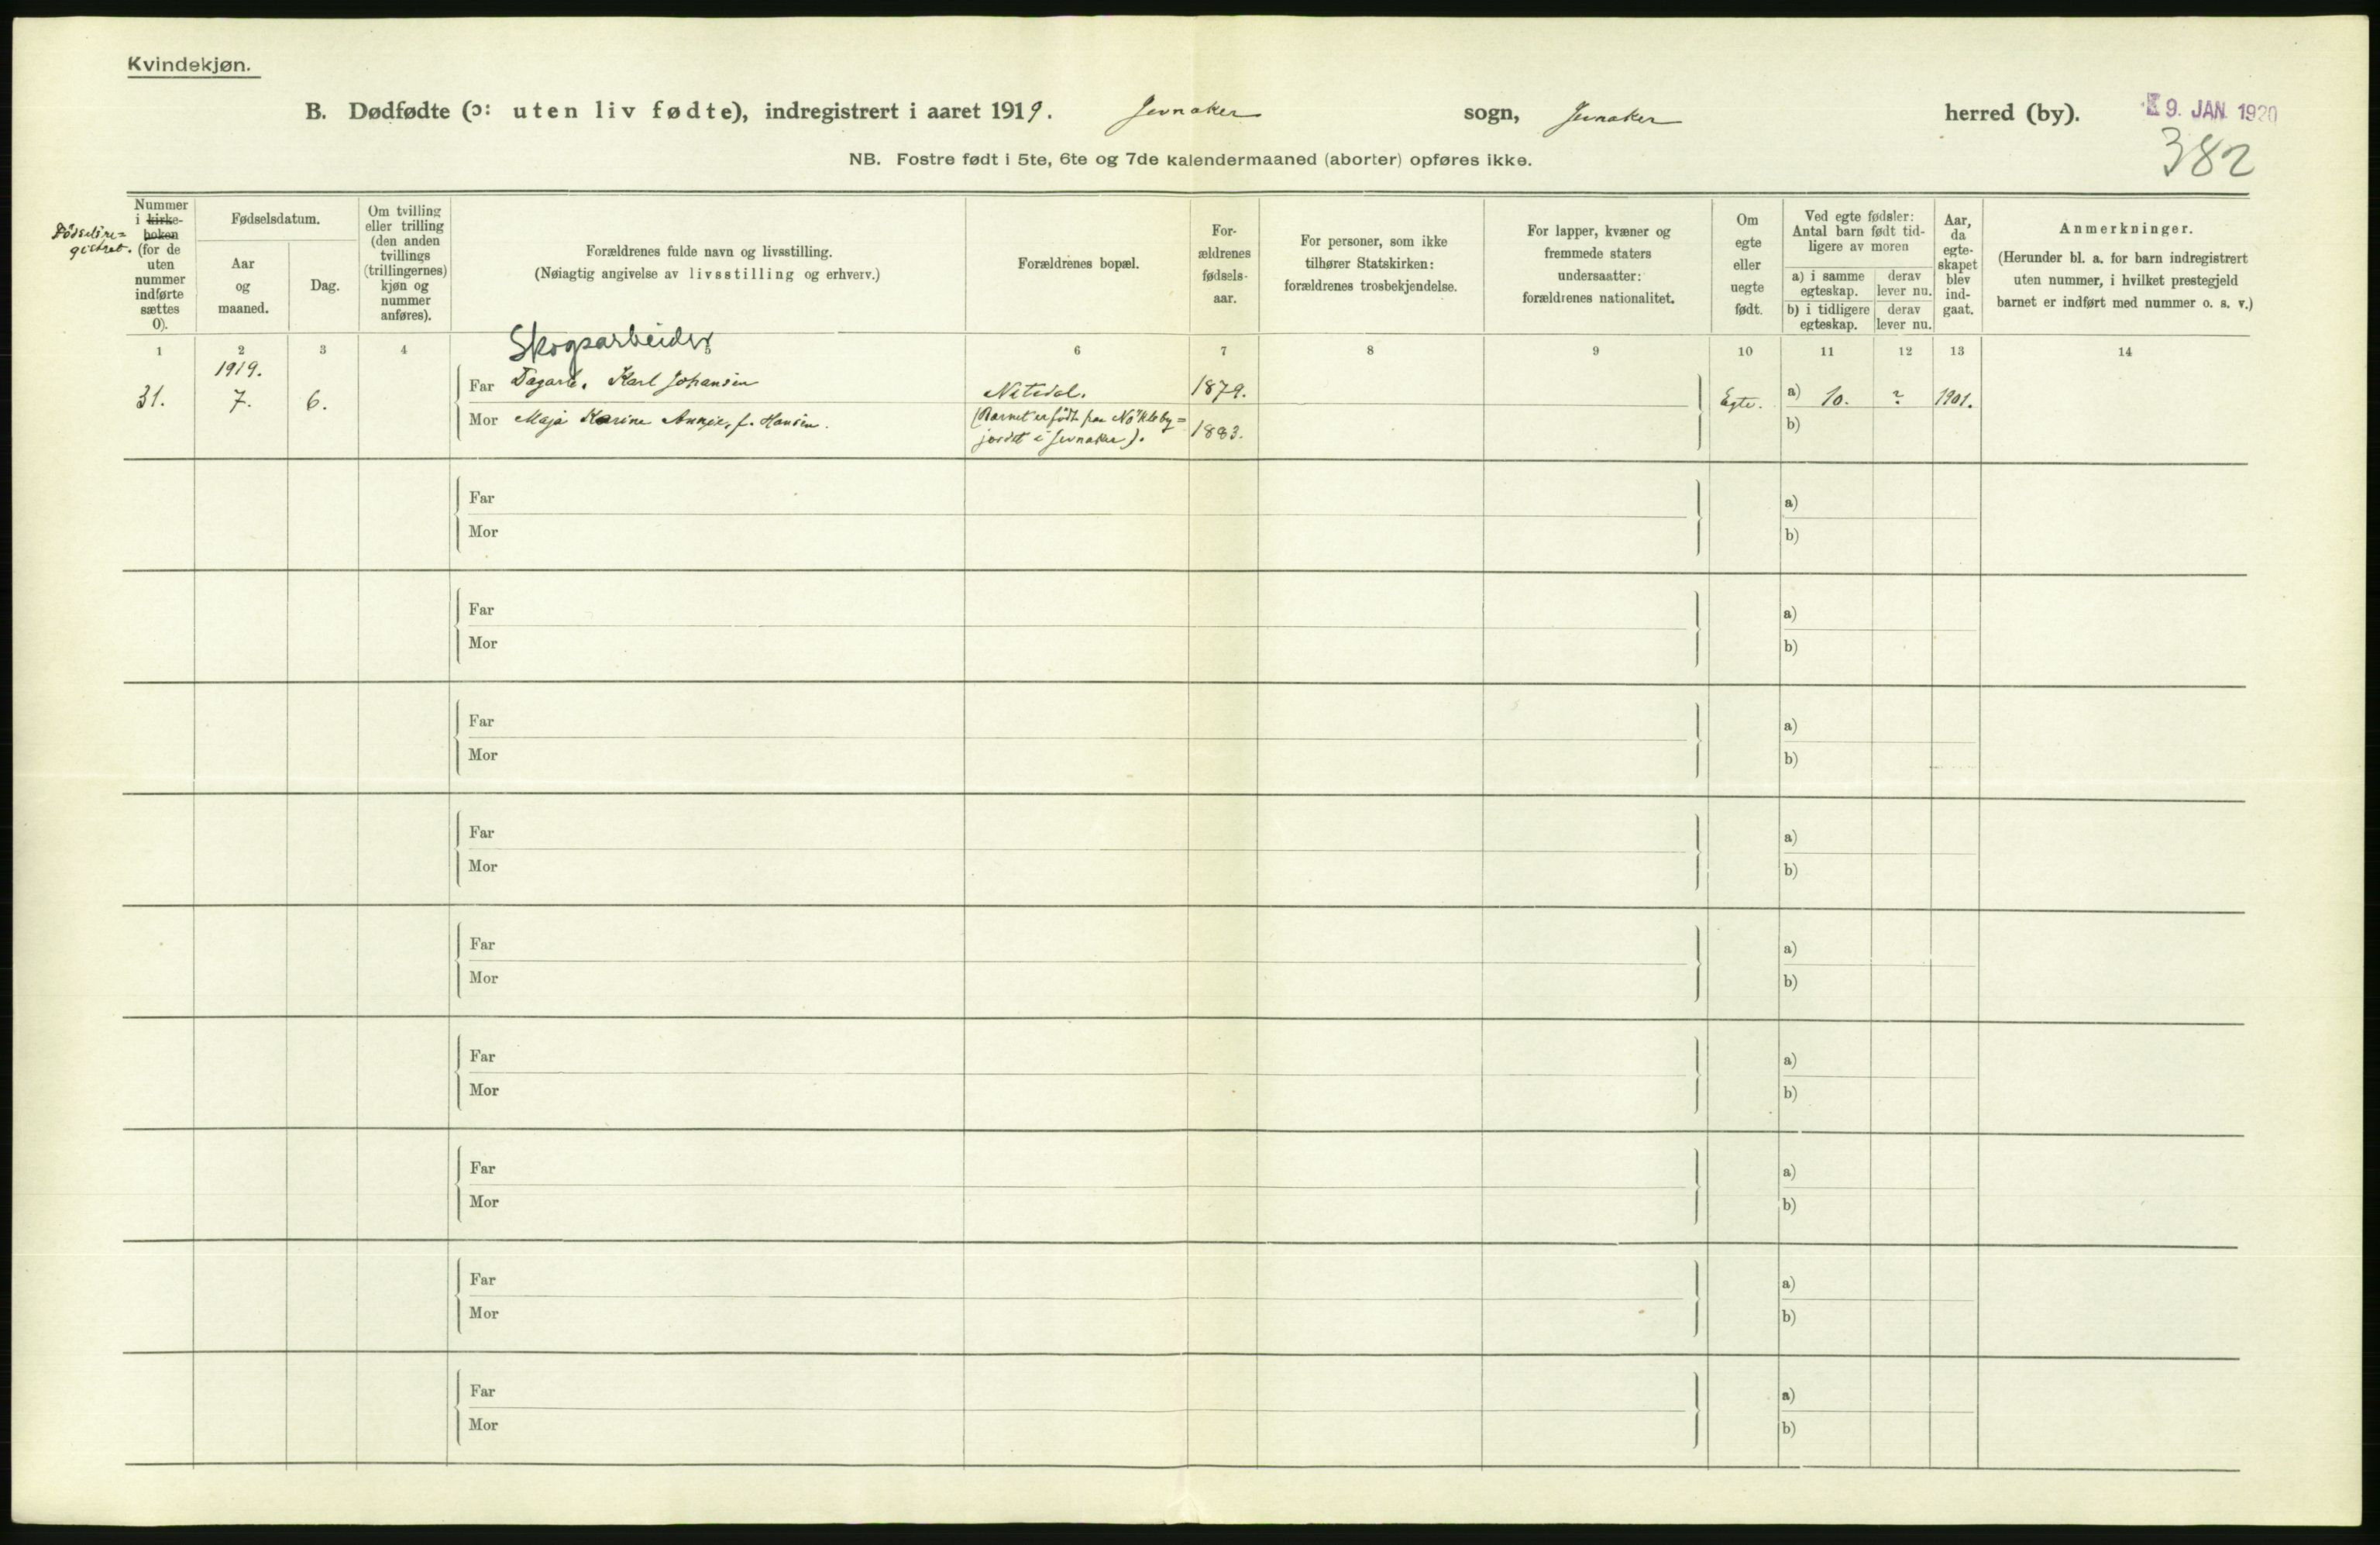 Kvindekjøn.
B. Dødfødte (ɔ: uten liv fødte), indregistrert i aaret 1919. Jevnaker sogn, Jevnaker herred (by).
9. JAN. 1920
382
NB. Fostre født i 5te, 6te og 7de kalendermaaned (aborter) opføres ikke.
Fødselsre=
gistret.
Nummer
i kirke-
boken
(for de
uten
nummer
indførte
sættes
0).
Fødselsdatum.
Aar
og
maaned.
Dag.
Om tvilling
eller trilling
(den anden
tvillings
(trillingernes)
kjøn og
nummer
anføres).
Forældrenes fulde navn og livsstilling.
(Nøiagtig angivelse av livsstilling og erhverv.)
Forældrenes bopæl.
For-
ældrenes
fødsels-
aar.
For personer, som ikke
tilhører Statskirken:
forældrenes trosbekjendelse.
For lapper, kvæner og
fremmede staters
undersaatter:
forældrenes nationalitet.
Om
egte
eller
uegte
født.
Ved egte fødsler:
Antal barn født tid-
ligere av moren
a) i samme
egteskap.
derav
lever nu.
b) i tidligere
egteskap.
derav
lever nu.
Aar,
da
egte-
skapet
blev
ind-
gaat.
Anmerkninger.
(Herunder bl. a. for barn indregistrert
uten nummer, i hvilket prestegjeld
barnet er indført med nummer o. s. v.)
1 2 3 4 5 6 7 8 9 10 11 12 13 14
Skogsarbeider
31. 1919. 7. 6.
Far Dagarb. Karl Johansen Nitedal. 1879.
Mor Maja Karine f. Hansen. (Barnet er født paa Nøkleby=
jordet i Jevnaker). 1883.
Egte. a) 10. ? 1901.
b)
Far a)
Mor b)
Far a)
Mor b)
Far a)
Mor b)
Far a)
Mor b)
Far a)
Mor b)
Far a)
Mor b)
Far a)
Mor b)
Far a)
Mor b)
Far a)
Mor b)